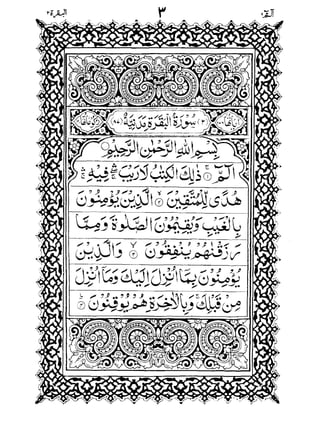 البقرة ٢ ٣ الٓمٓ ١
سُوْرَةُ الْبَقَرَةِ مَدَنِيَّةٌ
بِسْمِ اللهِ الرَّحْمٰنِ الرَّحِيْمِ
الٓمّٓ ۚ ذٰلِكَ الْكِتٰبُ لَا رَيْبَ ۛ فِيْهِ ۛ
هُدًى لِّلْمُتَّقِيْنَ ۙ الَّذِيْنَ يُؤْمِنُوْنَ
بِالْغَيْبِ وَيُقِيْمُوْنَ الصَّلٰوةَ وَمِمَّا
رَزَقْنٰهُمْ يُنْفِقُوْنَ ۙ وَالَّذِيْنَ
يُؤْمِنُوْنَ بِمَآ اُنْزِلَ اِلَيْكَ وَمَآ اُنْزِلَ
مِنْ قَبْلِكَ ۚ وَبِالْاٰخِرَةِ هُمْ يُوْقِنُوْنَ